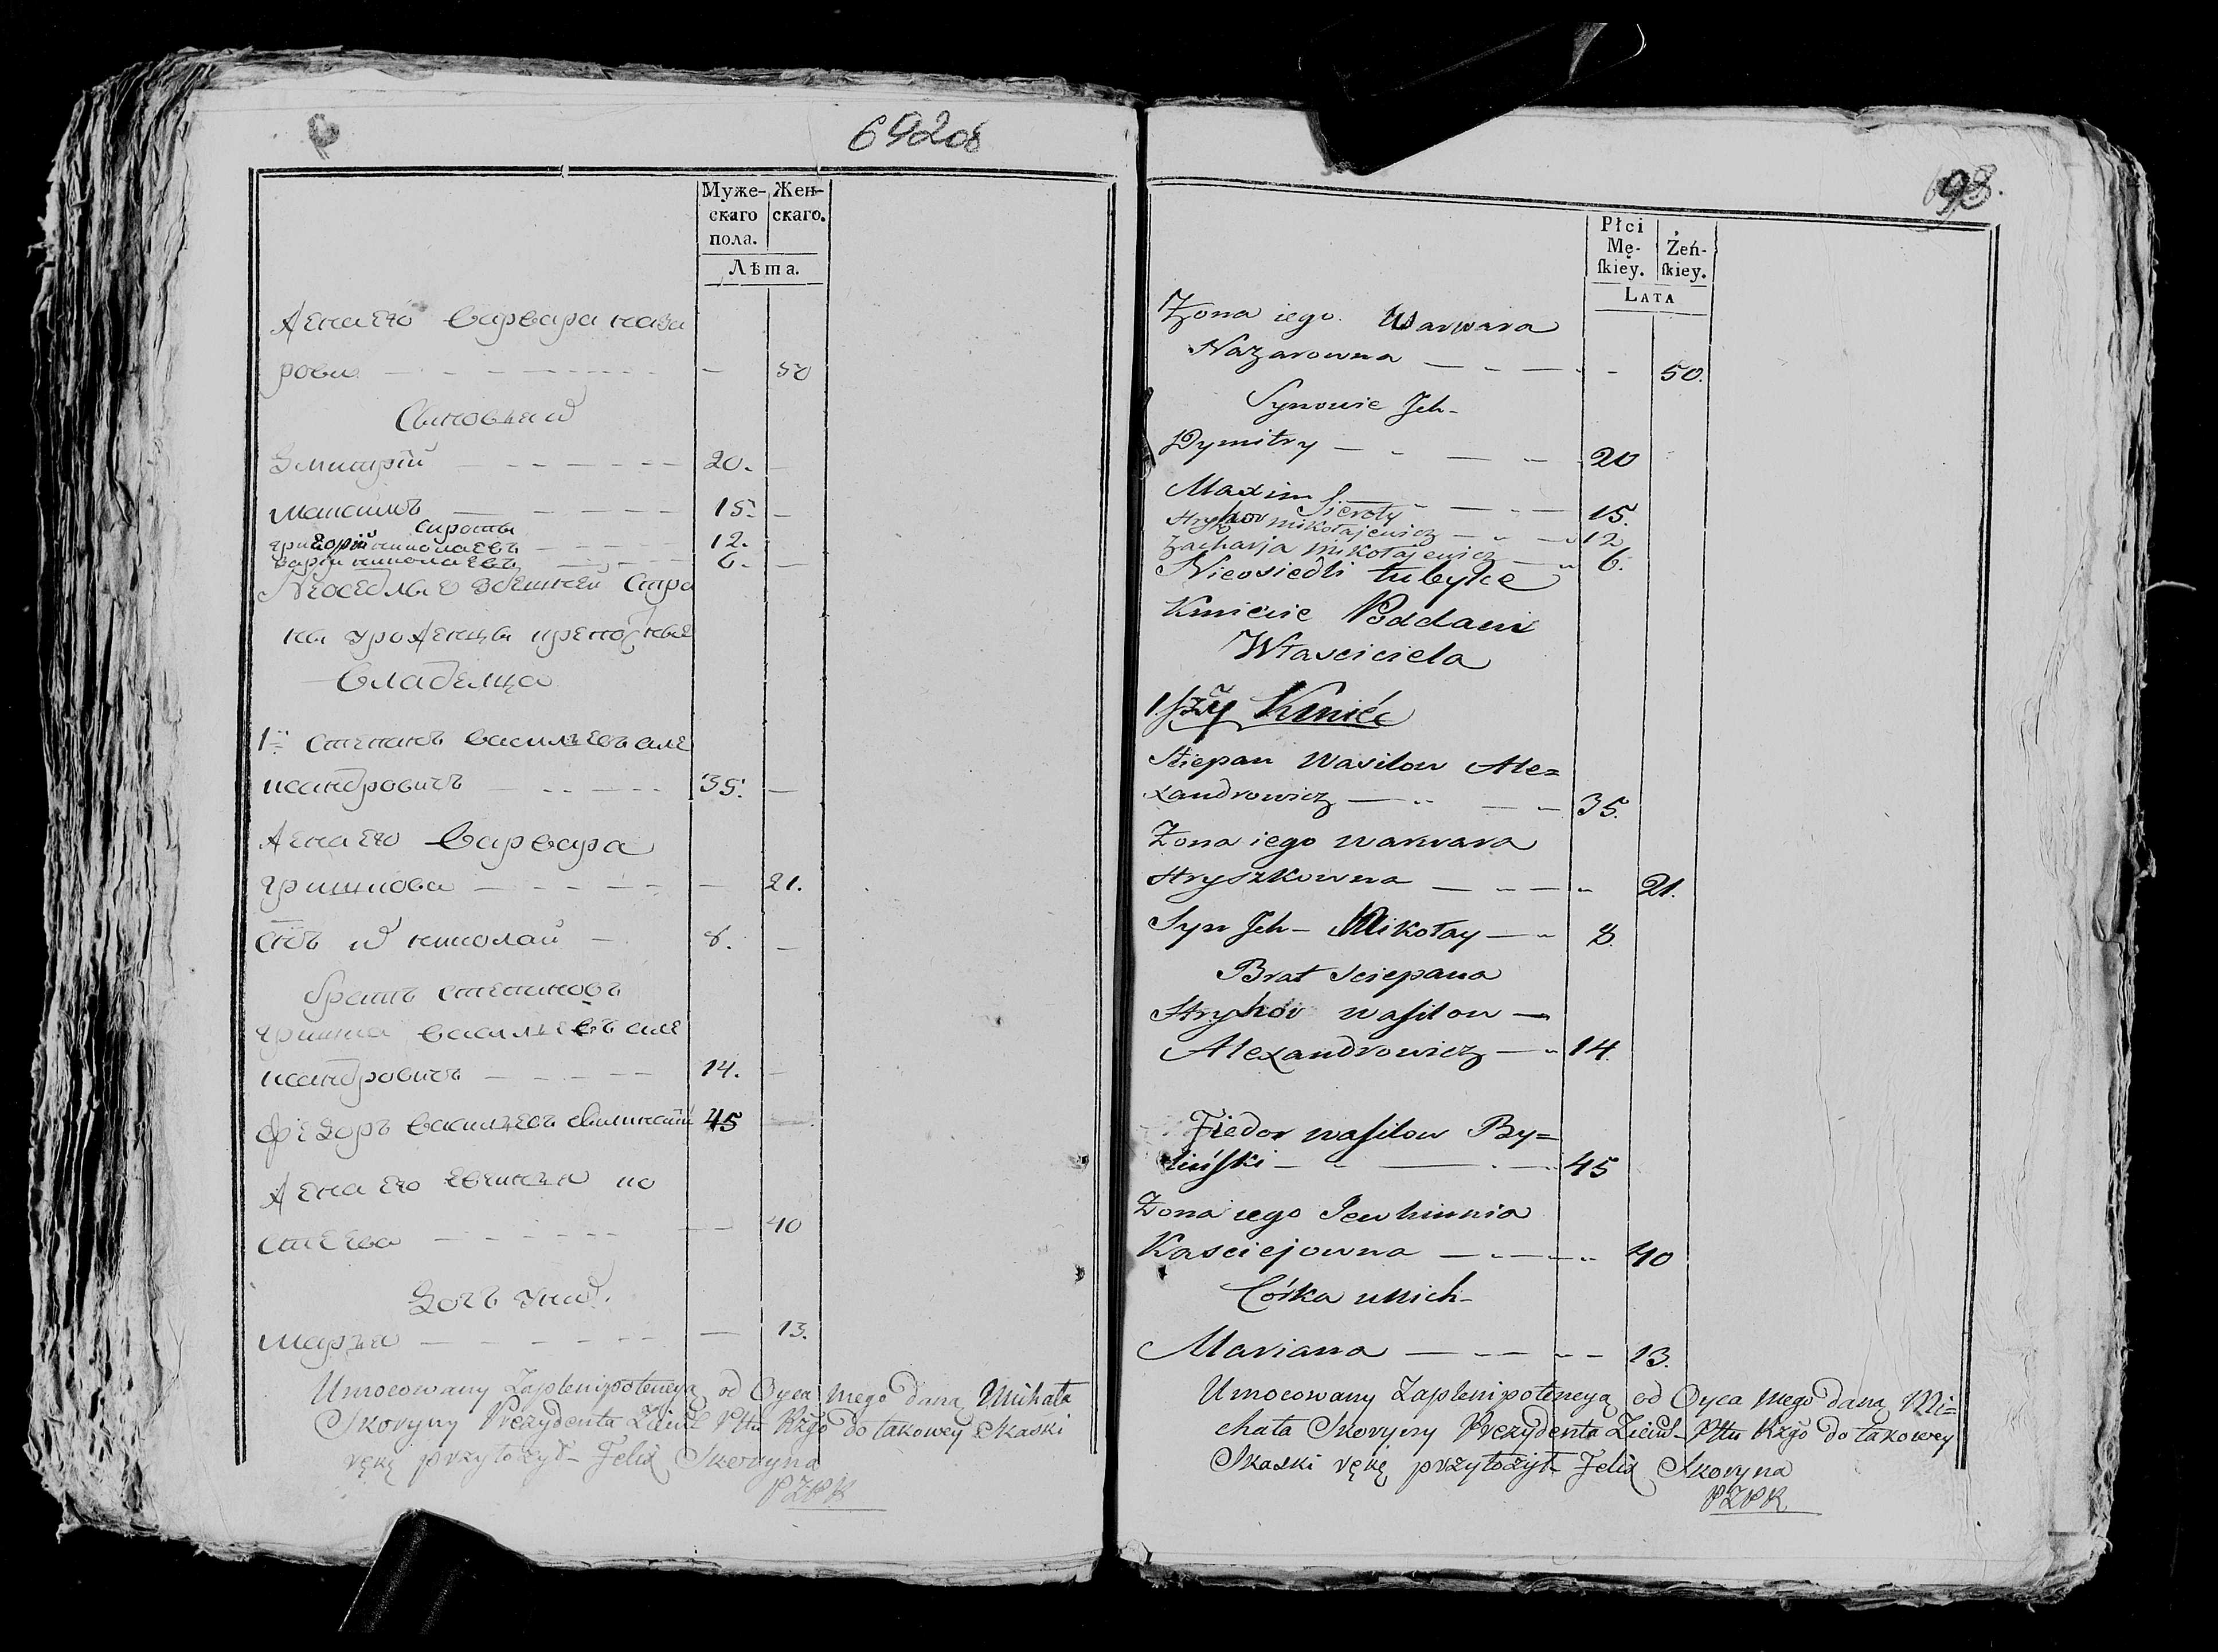 692об
Муже-
скаго
пола.
Жен-
скаго.
Лѣта.
Жена его варвара наза
рова — 50
Сыновья
Змитрій — 20.
Максимъ — 15.
Сироты
григорій николаевъ — 12.
николаевъ — 6.
владелца
1й степанъ васильевъ але
ксандровичъ — 35.
Жена его варвара
гришкова — 21.
николай — 8.
братъ степановъ
гришка васильевъ але
ксандровичъ — 14.
федоръ васильевъ 45
Жена его ко
стеева — 40
дочь
марья — 13.
Umocowany Zaplenipotencyą od Oyca mego daną Michała
Skoryny Prezydenta Ziem Pttu Rzgo do takowey Skaski
rękę przyłożył Felix Skoryna
PZPR
693.
Płci
Mę-
ſkiey.
Żeń-
ſkiey.
LATA
Żona iego Warwara
Nazarowna — 50.
Synowie Ich
Dymitry — 20
Maxim — 15.
Sieroty
Hryhor mikołajewicz — 12
Zacharja mikołajewicz — 6.
Nieosiedli tubylce
Kmiecie Poddani
Własciciela
1.szy Kmieć
Stiepan Wasilow Ale=
xandrowicz — 35.
Żona iego warwara
Hryszkowna — 21.
Syn Ich Mikołay — 8.
Brat Sciepana
Hryhor wasilow
Alexandrowicz — 14.
Fiedor wasilow By=
liński — 45
Żona iego Jewhinnia
Kasciejowna — 40
Córka unich
Mariana — 13.
Umocowany Zaplenipotencyą od Oyca mego daną Mi=
chała Skoryny Prezydenta Ziem Pttu Rzgo do takowey
Skaski rękę przyłożył Felix Skoryna
PZPR